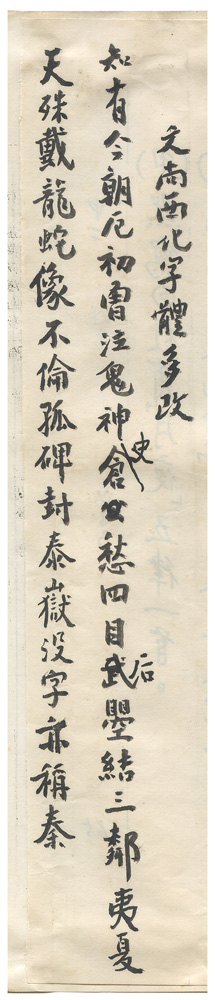 文尚西化字體多改
知有今朝厄初曾泣鬼神史倉愁四目后曌結三鄰夷夏
天殊戴龍蛇像不倫孤碑封泰嶽没字亦稱秦